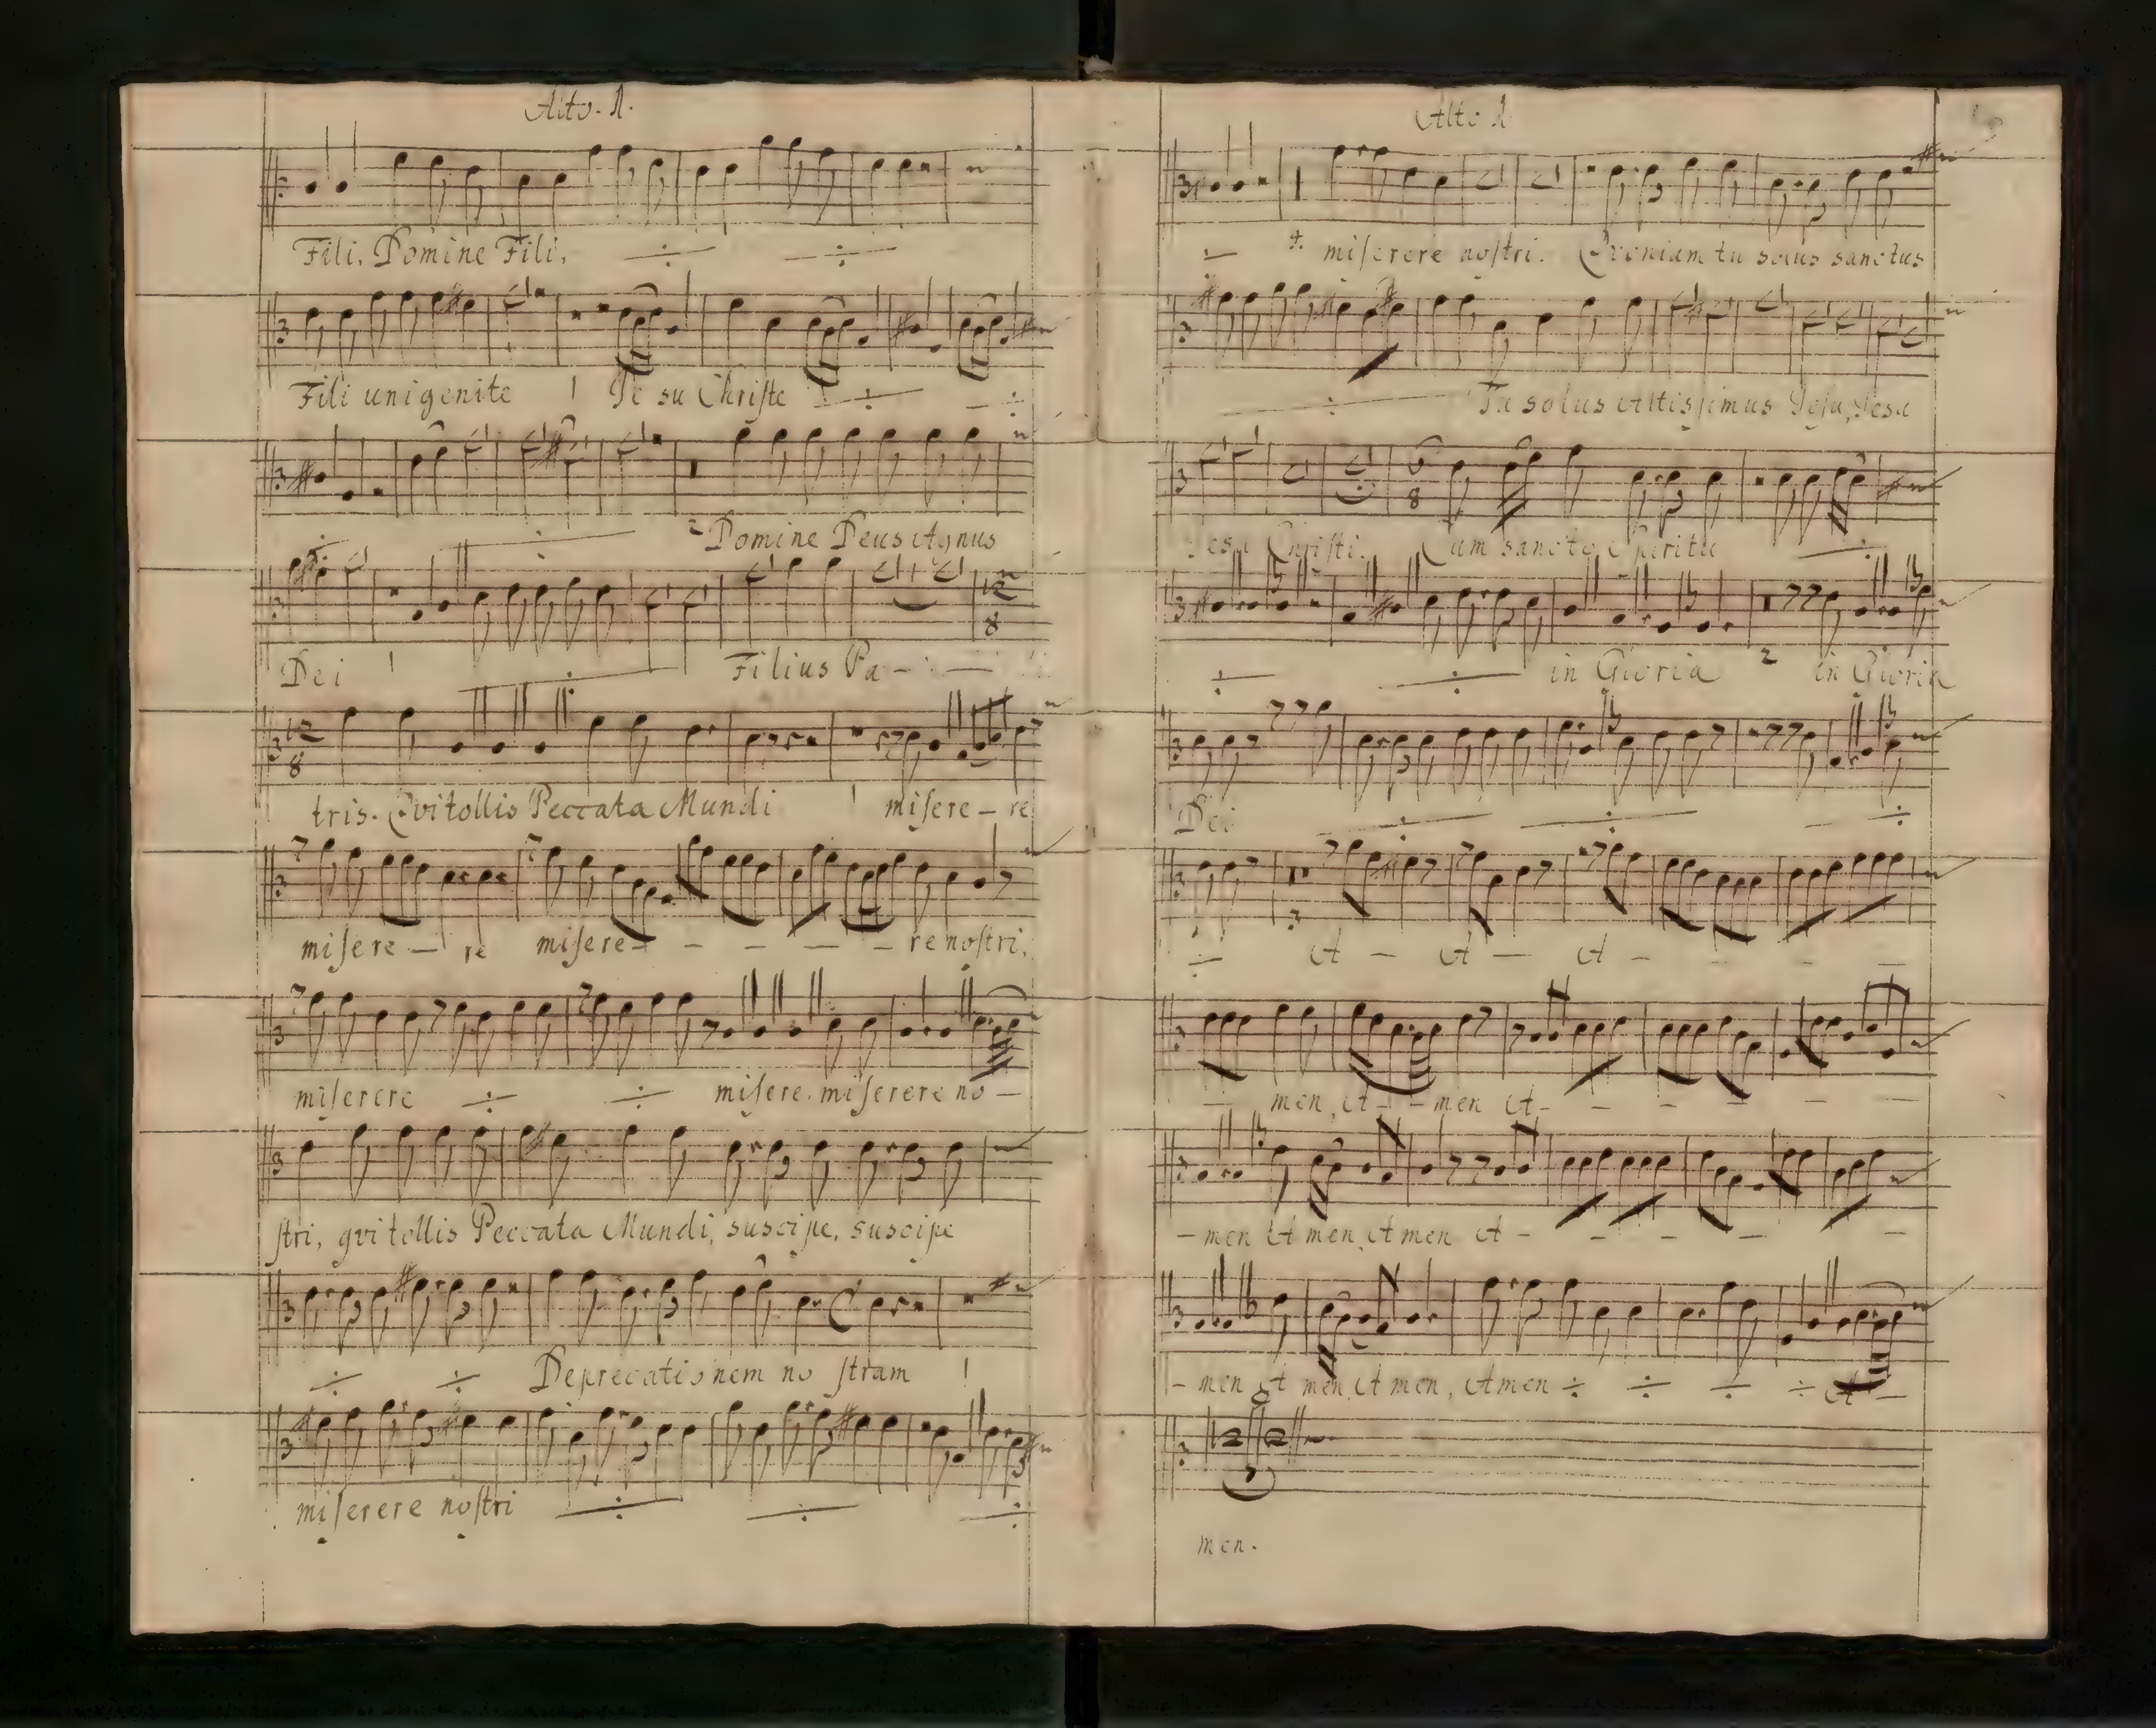 Alto. 1.
Fili, Domine Fili, ÷ ÷
Fili unigenite Je su Christe ÷ ÷
÷ ÷ 2 Domine Deus Agnus
Dei ÷ Filius Pa -
tris. Qvi tollis Peccata Mundi misere - re
misere - re misere - - - - - re nostri,
miserere ÷ ÷ misere. miserere no -
stri, qvi tollis Peccata Mundi, suscipe, suscipe
÷ ÷ Deprecationem no stram
miserere nostri ÷ ÷ ÷
Alto 1
÷ miserere nostri. Qvoniam tu solus sanctus
÷ Tu solus Altissimus Jesu, Jesu
Jesu Christi. Cum sancto Spiritu ÷
÷ ÷ in Gloria 2 in Gloria
Dei ÷ ÷ ÷
÷ A - A - A - - - -
- men, A - - men A - - - - -
- men A men, A men A - - - - -
- men A men, A men, Amen ÷ ÷ ÷ ÷ A -
men.